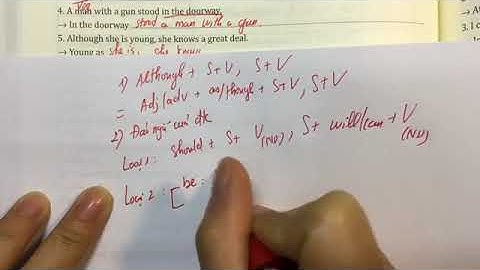 4. A man with a gun stood in the doorway.
→ In the doorway stood a man with a gun.
5. Although she is young, she knows a great deal.
→ Young as she is, she knows
1) Although + S+V, S+V
= Adj/adv + as/though + S+V, S+V
2) Đảo ngữ câu đk
Loại 1: Should + S + V (N0), S + will/can + V (N0)
Loại 2: [ be:
→ A
3. I c